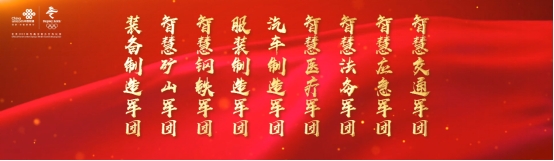 China unicom中国联通
智慧交通军团
智慧应急军团
智慧法务军团
智慧医疗军团
汽车制造军团
服装制造军团
智慧钢铁军团
智慧矿山军团
装备制造军团